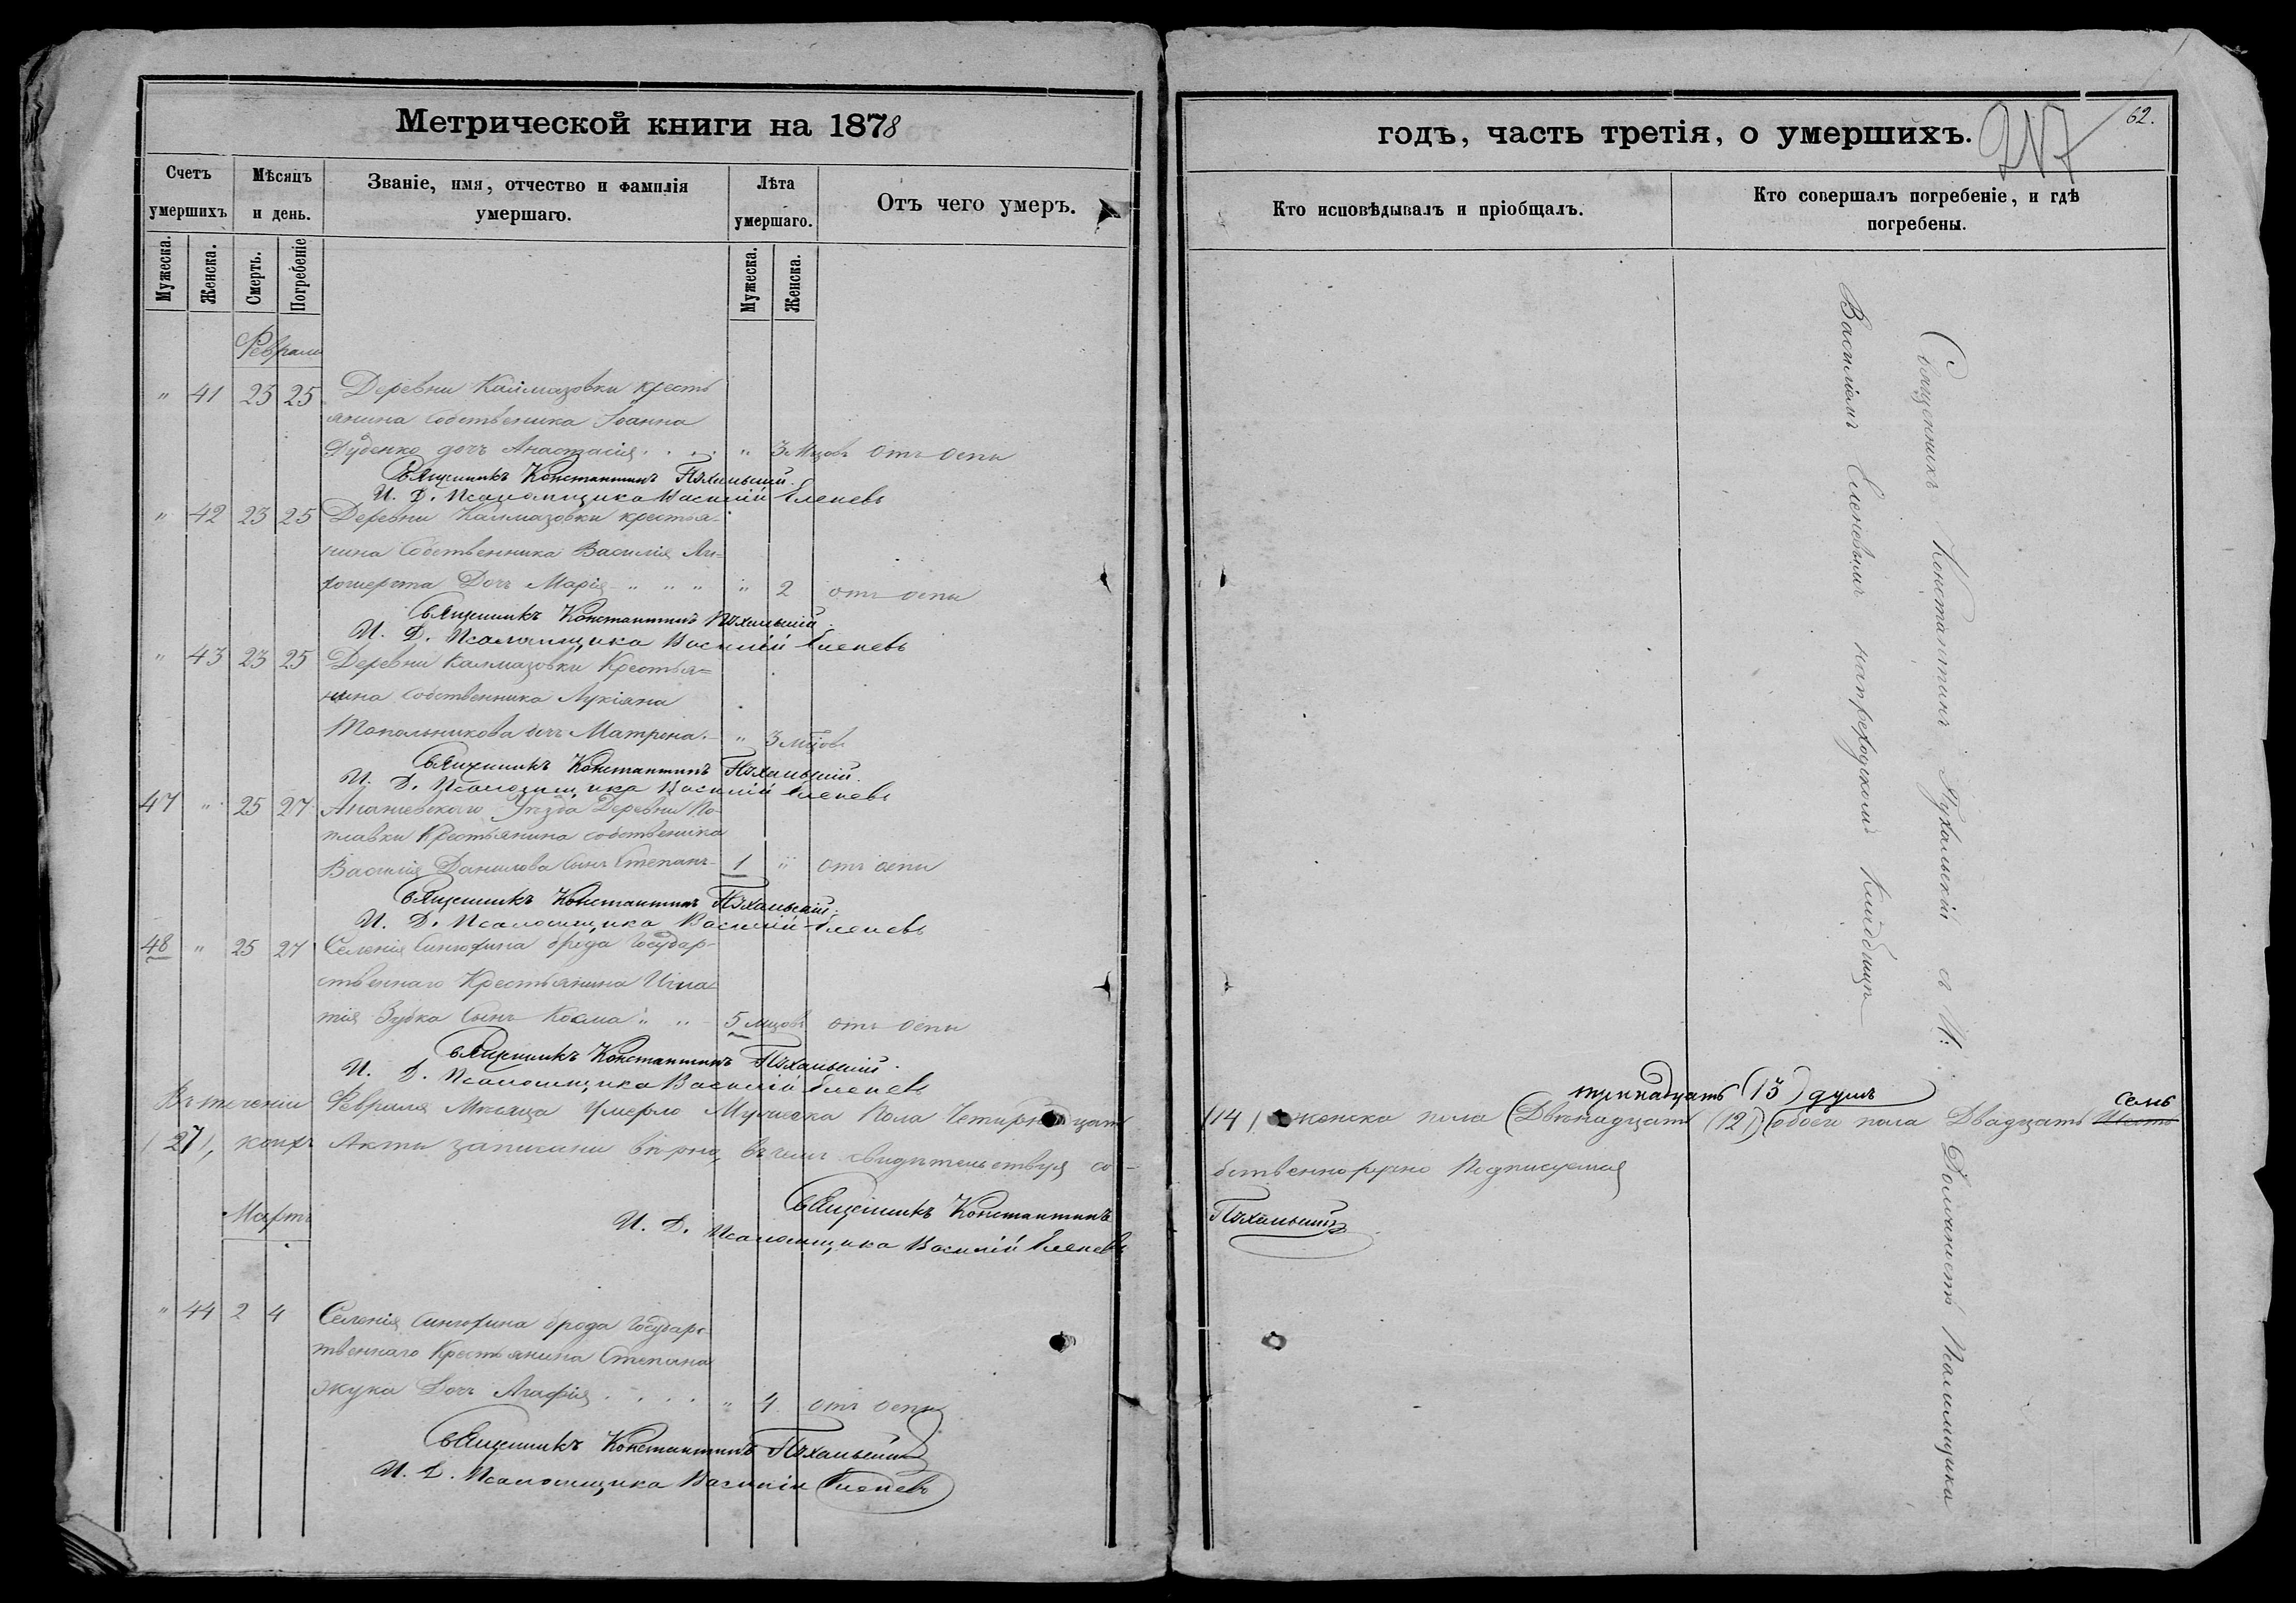 Метрической книги на 1878
Счетъ умершихъ
Мѣсяцъ и день.
Званіе, имя, отчество и фамилія умершаго.
Лѣта умершаго.
Отъ чего умеръ.
Мужеска. Женска. Смерть. Погребеніе Мужеска. Женска.
Февраль
" 41 23 25 Деревни Калмазовки кресть
янина собственика Іоанна
Дуденко дочь Анастасія " 3 Мцовъ отъ оспы
Священникъ Константинъ Пѣхальскій.
И. Д. Псаломщика Василій Еленевъ
" 42 23 25 Деревни Калмазовки крестья-
нина Собственника Василія
Дочь Марія " " " " 2 отъ оспы
Священникъ Константинъ Пѣхальскій.
И. Д. Псаломщика Василій Еленевъ
" 43 23 25 Деревни Калмазовки Крестья=
нина собственника Лукіяна
Топольникова дочь Матрена. " 3 мцовъ
Священникъ Константинъ Пѣхальскій.
И. Д. Псаломщика Василій Еленевъ
47 " 25 27 Ананіевскаго Уѣзда Деревни По-
плавки Крестьянина собственика
Василія Данилова Сынъ Степанъ 1 " отъ оспы
Священникъ Константинъ Пѣхальскій.
И. Д. Псаломщика Василій Еленевъ
48 " 25 27 Селенія Синюхина брода Государ-
ственнаго Крестьянина Игна
тія Зубка Сынъ Косма " " 5 мцовъ отъ оспы
Священникъ Константинъ Пѣхальскій.
И. Д. Псаломщика Василій Еленевъ
Въ теченіи Февраля Мѣсяца Умерло Мужеска Пола Четирнадцать
(27), коихъ Акты записаны вѣрно, въ чемъ свидѣтельствуя со-
Священникъ Константинъ
И. Д. Псаломщика Василій Еленевъ
Мартъ
" 44 2 4 Селенія Синюхина брода Государс
твеннаго Крестьянина Степана
Жука Дочь Агафія " 4 отъ оспы
Священникъ Константинъ Пѣхальскій
И. Д. Псаломщика Василій Еленевъ
годъ, часть третія, о умершихъ.
217
62.
Кто исповѣдывалъ и пріобщалъ.
Кто совершалъ погребеніе, и гдѣ погребены.
Священникъ Константинъ Пухальскій съ И: Должность Псаломщика
Василіемъ Еленевымъ на приходскомъ кладбищѣ
тринадцать (13) душъ
семь
(14) женска пола (Двѣнадцать (12)) обоего пола Двадцать шесть
бственноручно Подписуемся
Пѣхальскій